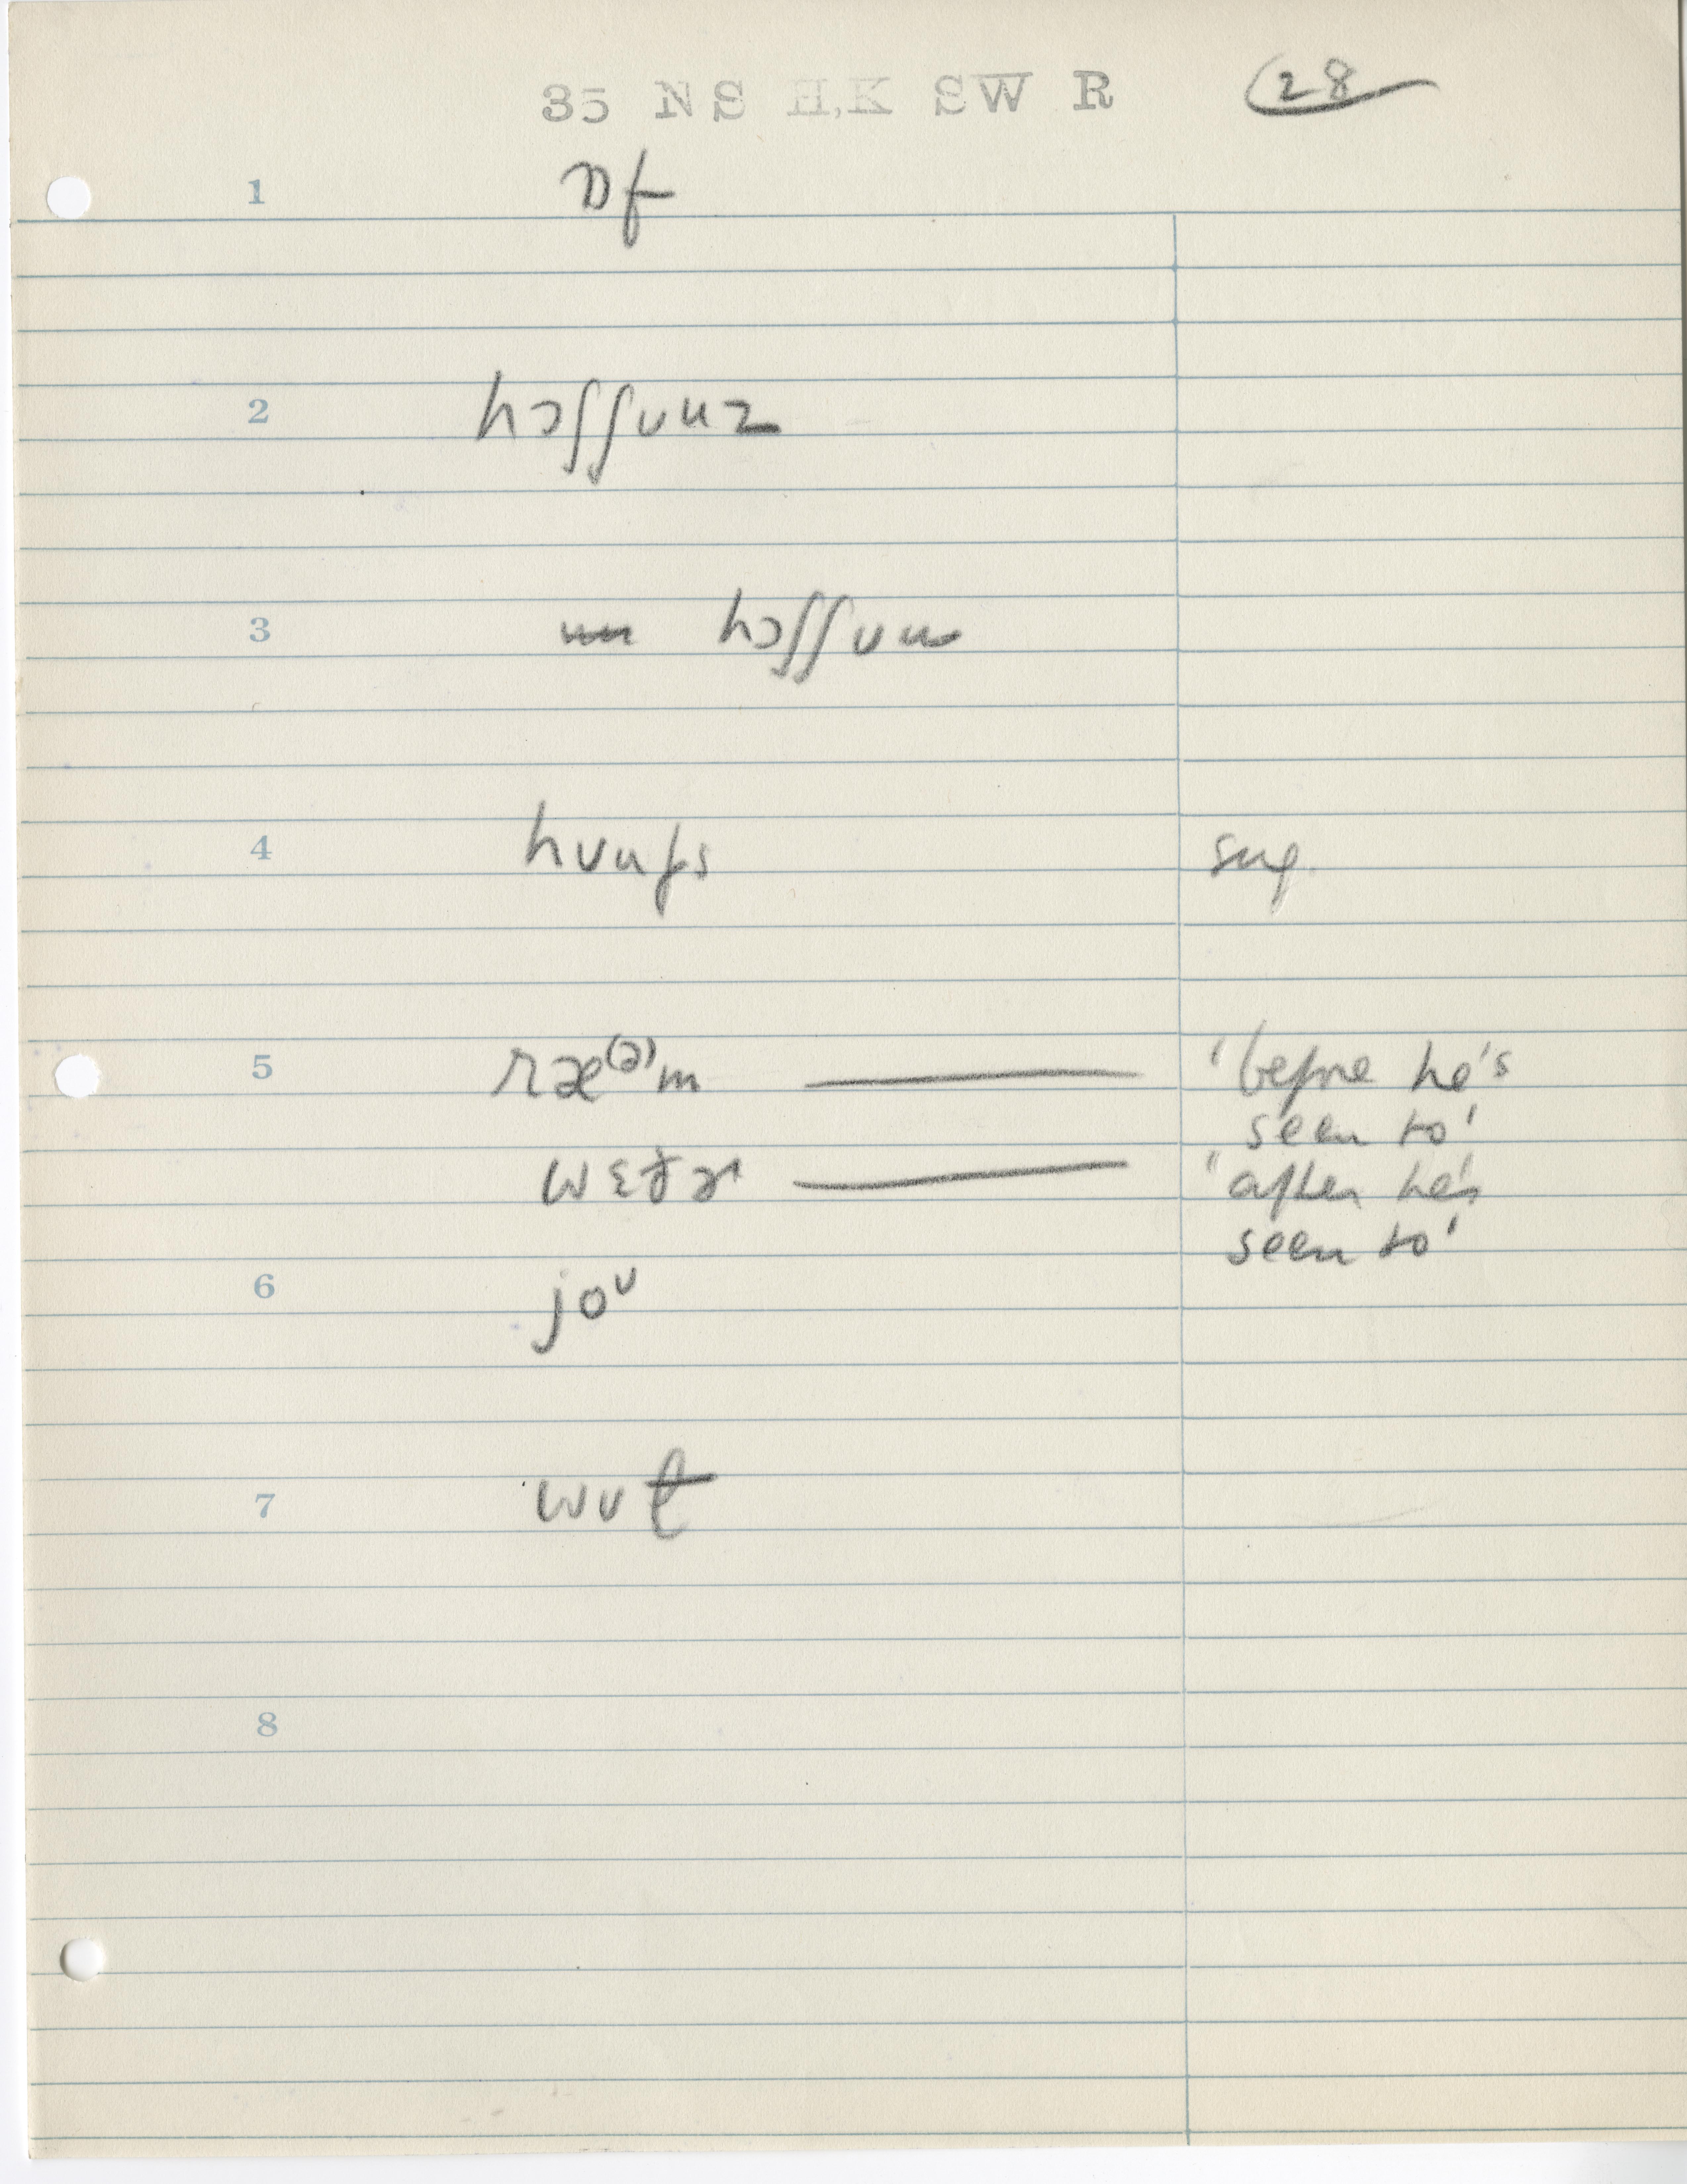 35 NS H,K SW R 28
1 ɒf
2 hɔffʊuz
3 hɔffʊu
4 hʊufs sug.
5 ræ⁽ᵊ⁾m 'before he's
seen to'
wɛðɚ "after he's
seen to'
6 joᵁ
7 wʊɫ
8